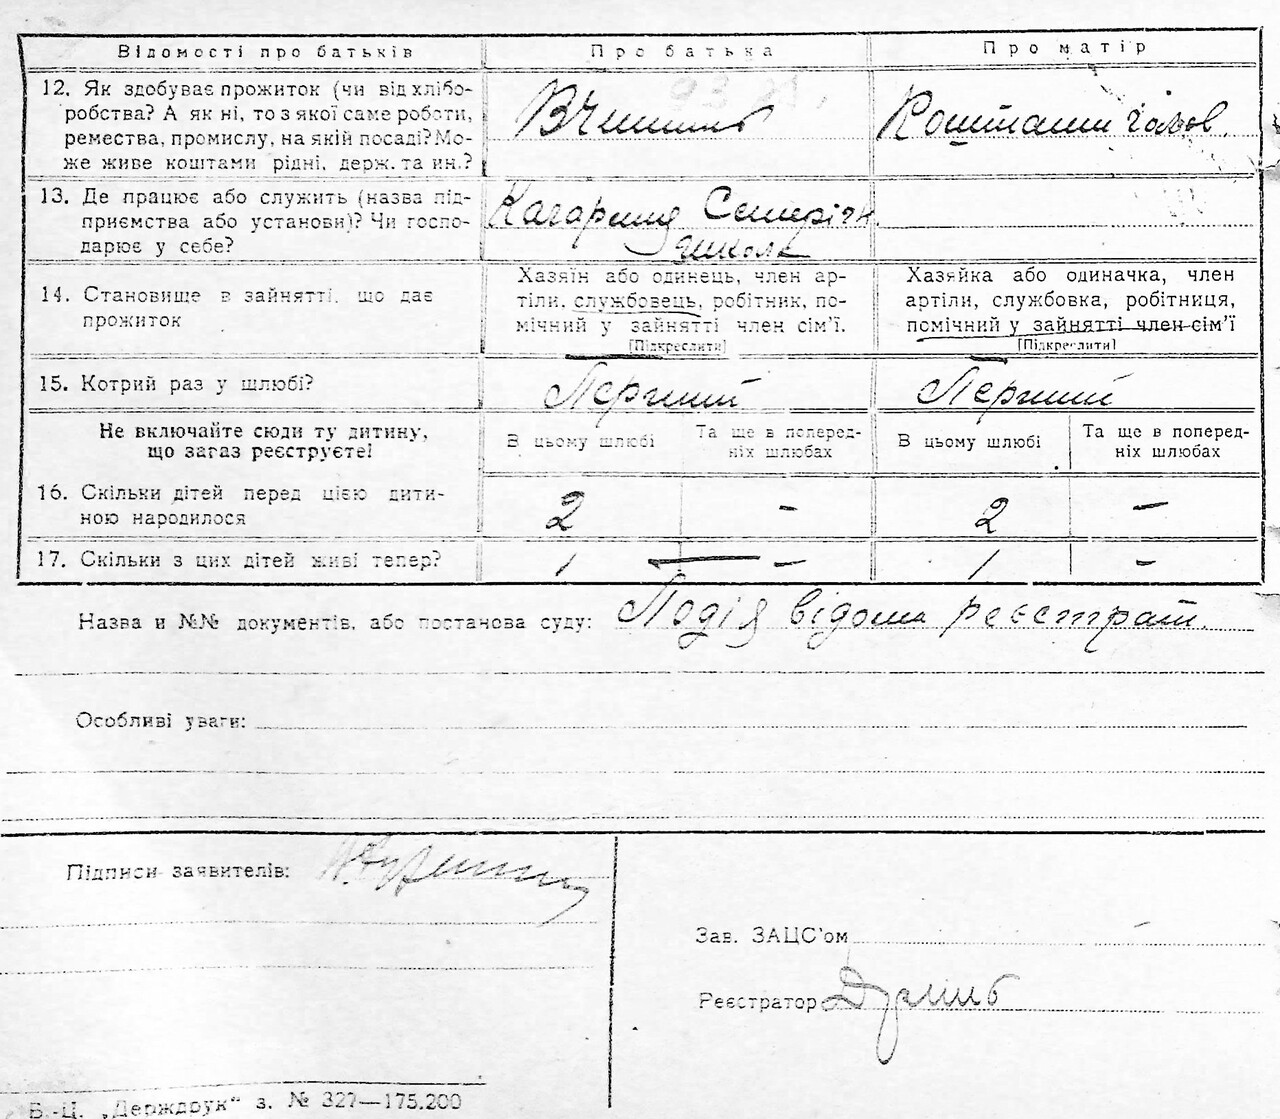 Відомості про батьків Про батька Про матір
12. Як здобуває прожиток (чи від хлібо-
робства? А як ні, то з якої саме роботи,
ремества, промислу, на якій посаді? Мо-
же живе коштами рідні, держ. та ин.?
Вчитель
Коштами чолов.
13. Де працює або служить (назва під-
приємства або установи)? Чи госпо-
дарює у себе?
школа
14. Становище в зайнятті, що дає
прожиток
Хазяїн або одинець, член ар-
тіли, службовець, робітник, по-
мічний у зайнятті член сім'ї.
[Підкреслити]
Хазяйка або одиначка, член
артіли, службовка, робітниця,
помічний у зайнятті член сім'ї
[Підкреслити]
15. Котрий раз у шлюбі? Перший Перший
Не включайте сюди ту дитину,
що загаз реєструєте!
В цьому шлюбі
Та ще в поперед-
ніх шлюбах
В цьому шлюбі
Та ще в поперед-
ніх шлюбах
16. Скільки дітей перед цією дити-
ною народилося
2 - 2 -
17. Скільки з цих дітей живі тепер? 1 - 1 -
Назва и №№ документів, або постанова суду: Подія відома реєстрат.
Особливі уваги:
Підписи заявителів:
Зав. ЗАЦС'ом
Реєстратор
Б.-Ц. „Держдрук" з. № 327—175.200